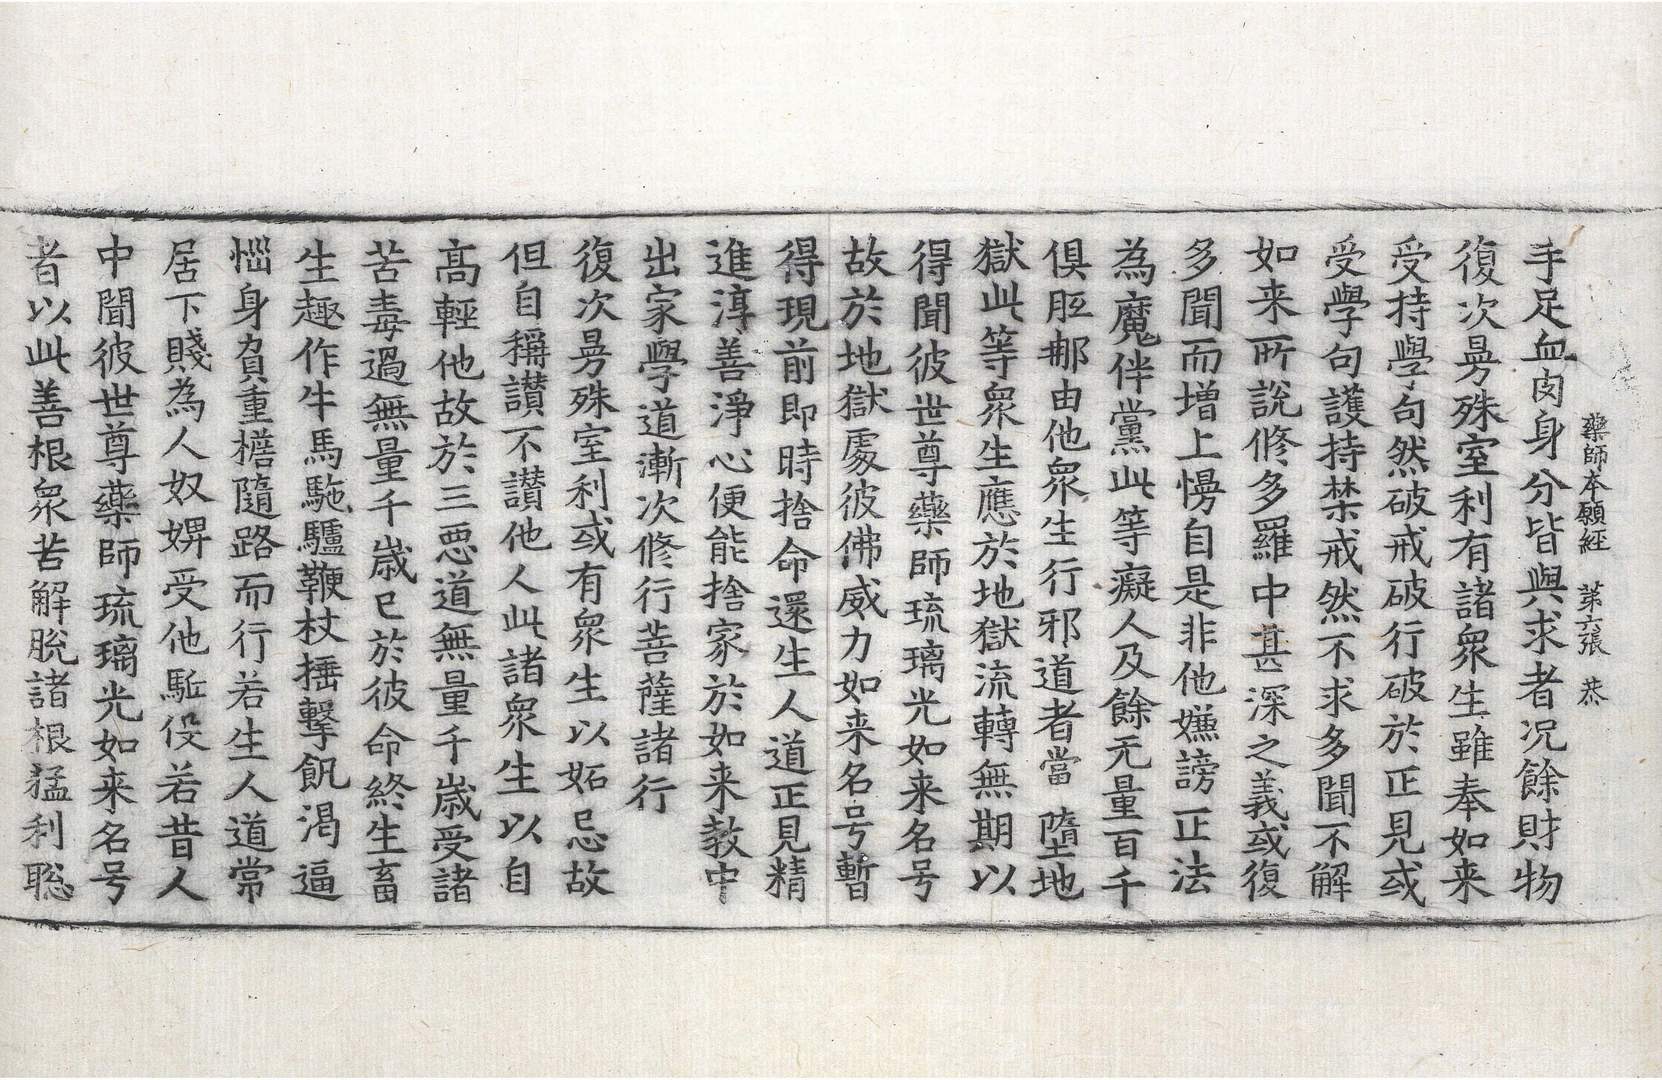 藥師本願經 第六張 恭
手足血肉身分皆與求者況餘財物
復次曼殊室利有諸衆生雖奉如来
受持學句然破戒破行破於正見或
受學句護持禁戒然不求多聞不解
如来所說修多羅中甚深之義或復
多聞而增上慢自是非他嫌謗正法
為魔伴黨此等癡人及餘无量百千
俱胝𨚗由他衆生行邪道者當墮地
獄此等衆生應於地獄流轉無期以
得聞彼世尊藥師琉璃光如来名号
故於地獄處彼佛威力如来名号暫
得現前即時捨命還生人道正見精
進淳善淨心便能捨家於如来教中
出家學道漸次修行菩薩諸行
復次曼殊室利或有衆生以妬忌故
但自稱讃不讃他人此諸衆生以自
高輕他故於三惡道無量千歲受諸
苦毒過無量千歲已於彼命終生畜
生趣作牛馬駞驢鞭杖捶擊飢渴逼
惱身負重檐隨路而行若生人道常
居下賤為人奴婢受他駈役若昔人
中聞彼世尊藥師琉璃光如来名号
者以此善根衆苦解脫諸根猛利聡